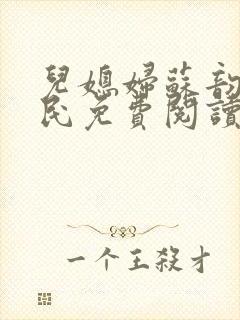 兒媳婦蘇韵
民免費閱讀
一个王殺才